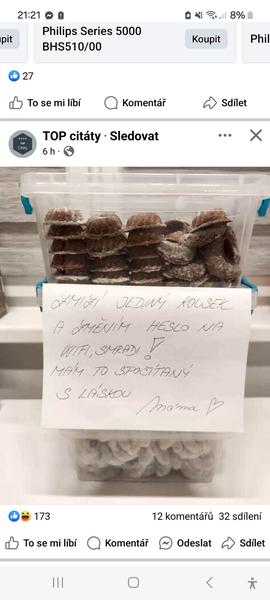 21:21
8%
upit
Philips Series 5000
BHS510/00
Koupit
Phil
27
To se mi líbí
Komentář
Sdílet
TOP citáty · Sledovat
6 h ·
ZMIZÍ JEDINÝ KOUSEK
A ZMĚNÍM HESLO NA
WIFI, SMRADI!
MÁM TO SPOČÍTANÝ
S LÁSKOU
Máma
173
12 komentářů 32 sdílení
To se mi líbí
Komentář
Odeslat
Sdílet